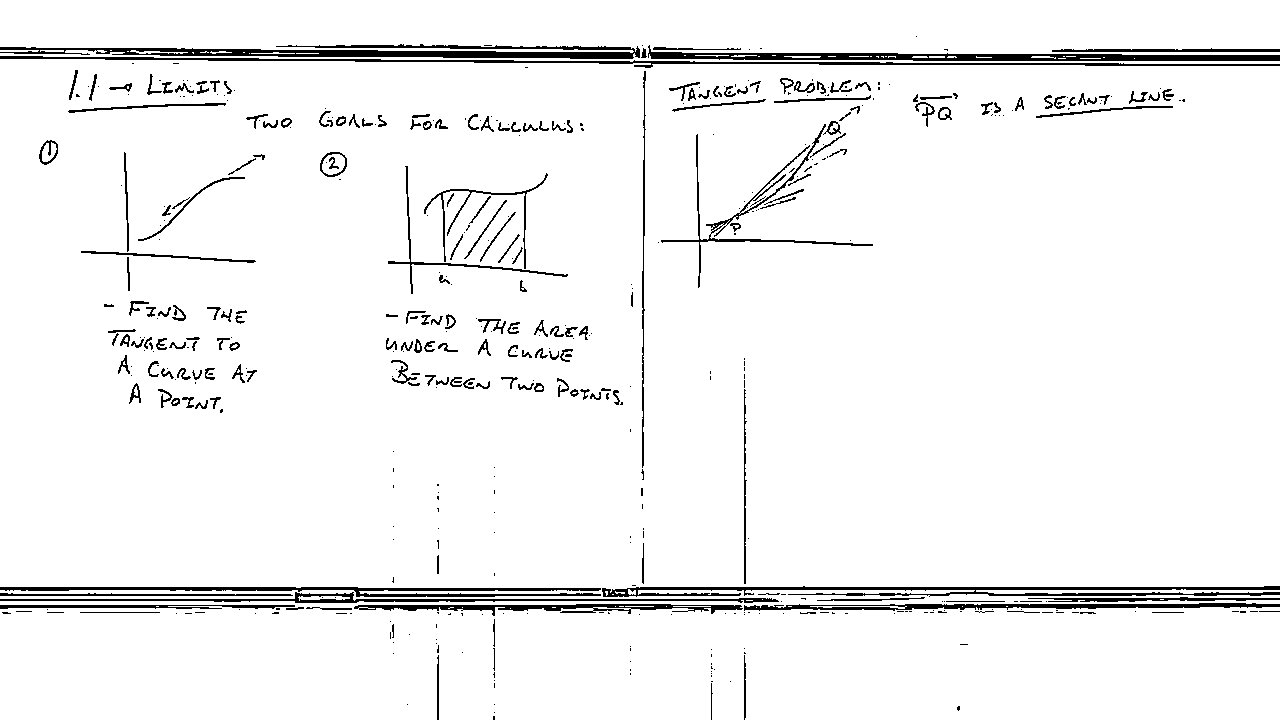 1.1 → LIMITS
TWO GOALS FOR CALCULUS:
①
②
a
b
- FIND THE
TANGENT TO
A CURVE AT
A POINT.
- FIND THE AREA
UNDER A CURVE
BETWEEN TWO POINTS.
TANGENT PROBLEM:
Q
P
PQ IS A SECANT LINE.